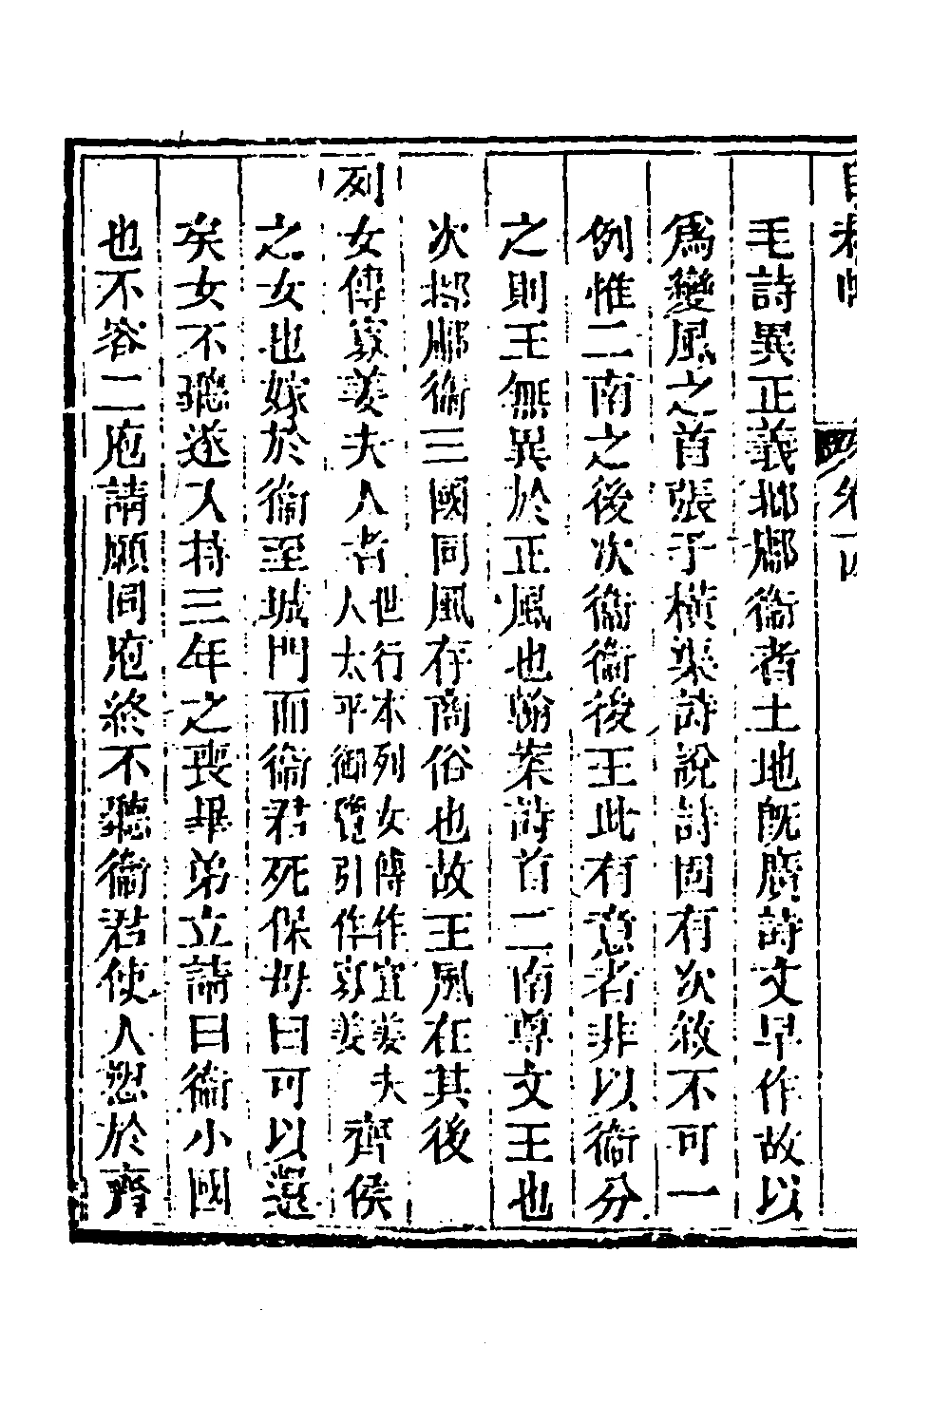 毛詩異正義邶鄘衞者土地旣廣詩文早作故以
爲變風之首張子橫渠詩說詩固有次敘不可一
例惟二南之後次衞衞後王此有意者非以衞分
之則王無異於正風也翰案詩首二南尊文王也
次邶鄘衞三國同風存商俗也故王風在其後
列女傳寡姜夫人者世行本列女傳作宣姜夫人太平御覽引作寡姜齊侯
之女也嫁於衞至城門而衞君死保母曰可以還
矣女不聽遂入持三年之喪畢弟立請曰衞小國
也不容二庖請願同庖終不聽衞君使人愬於齊